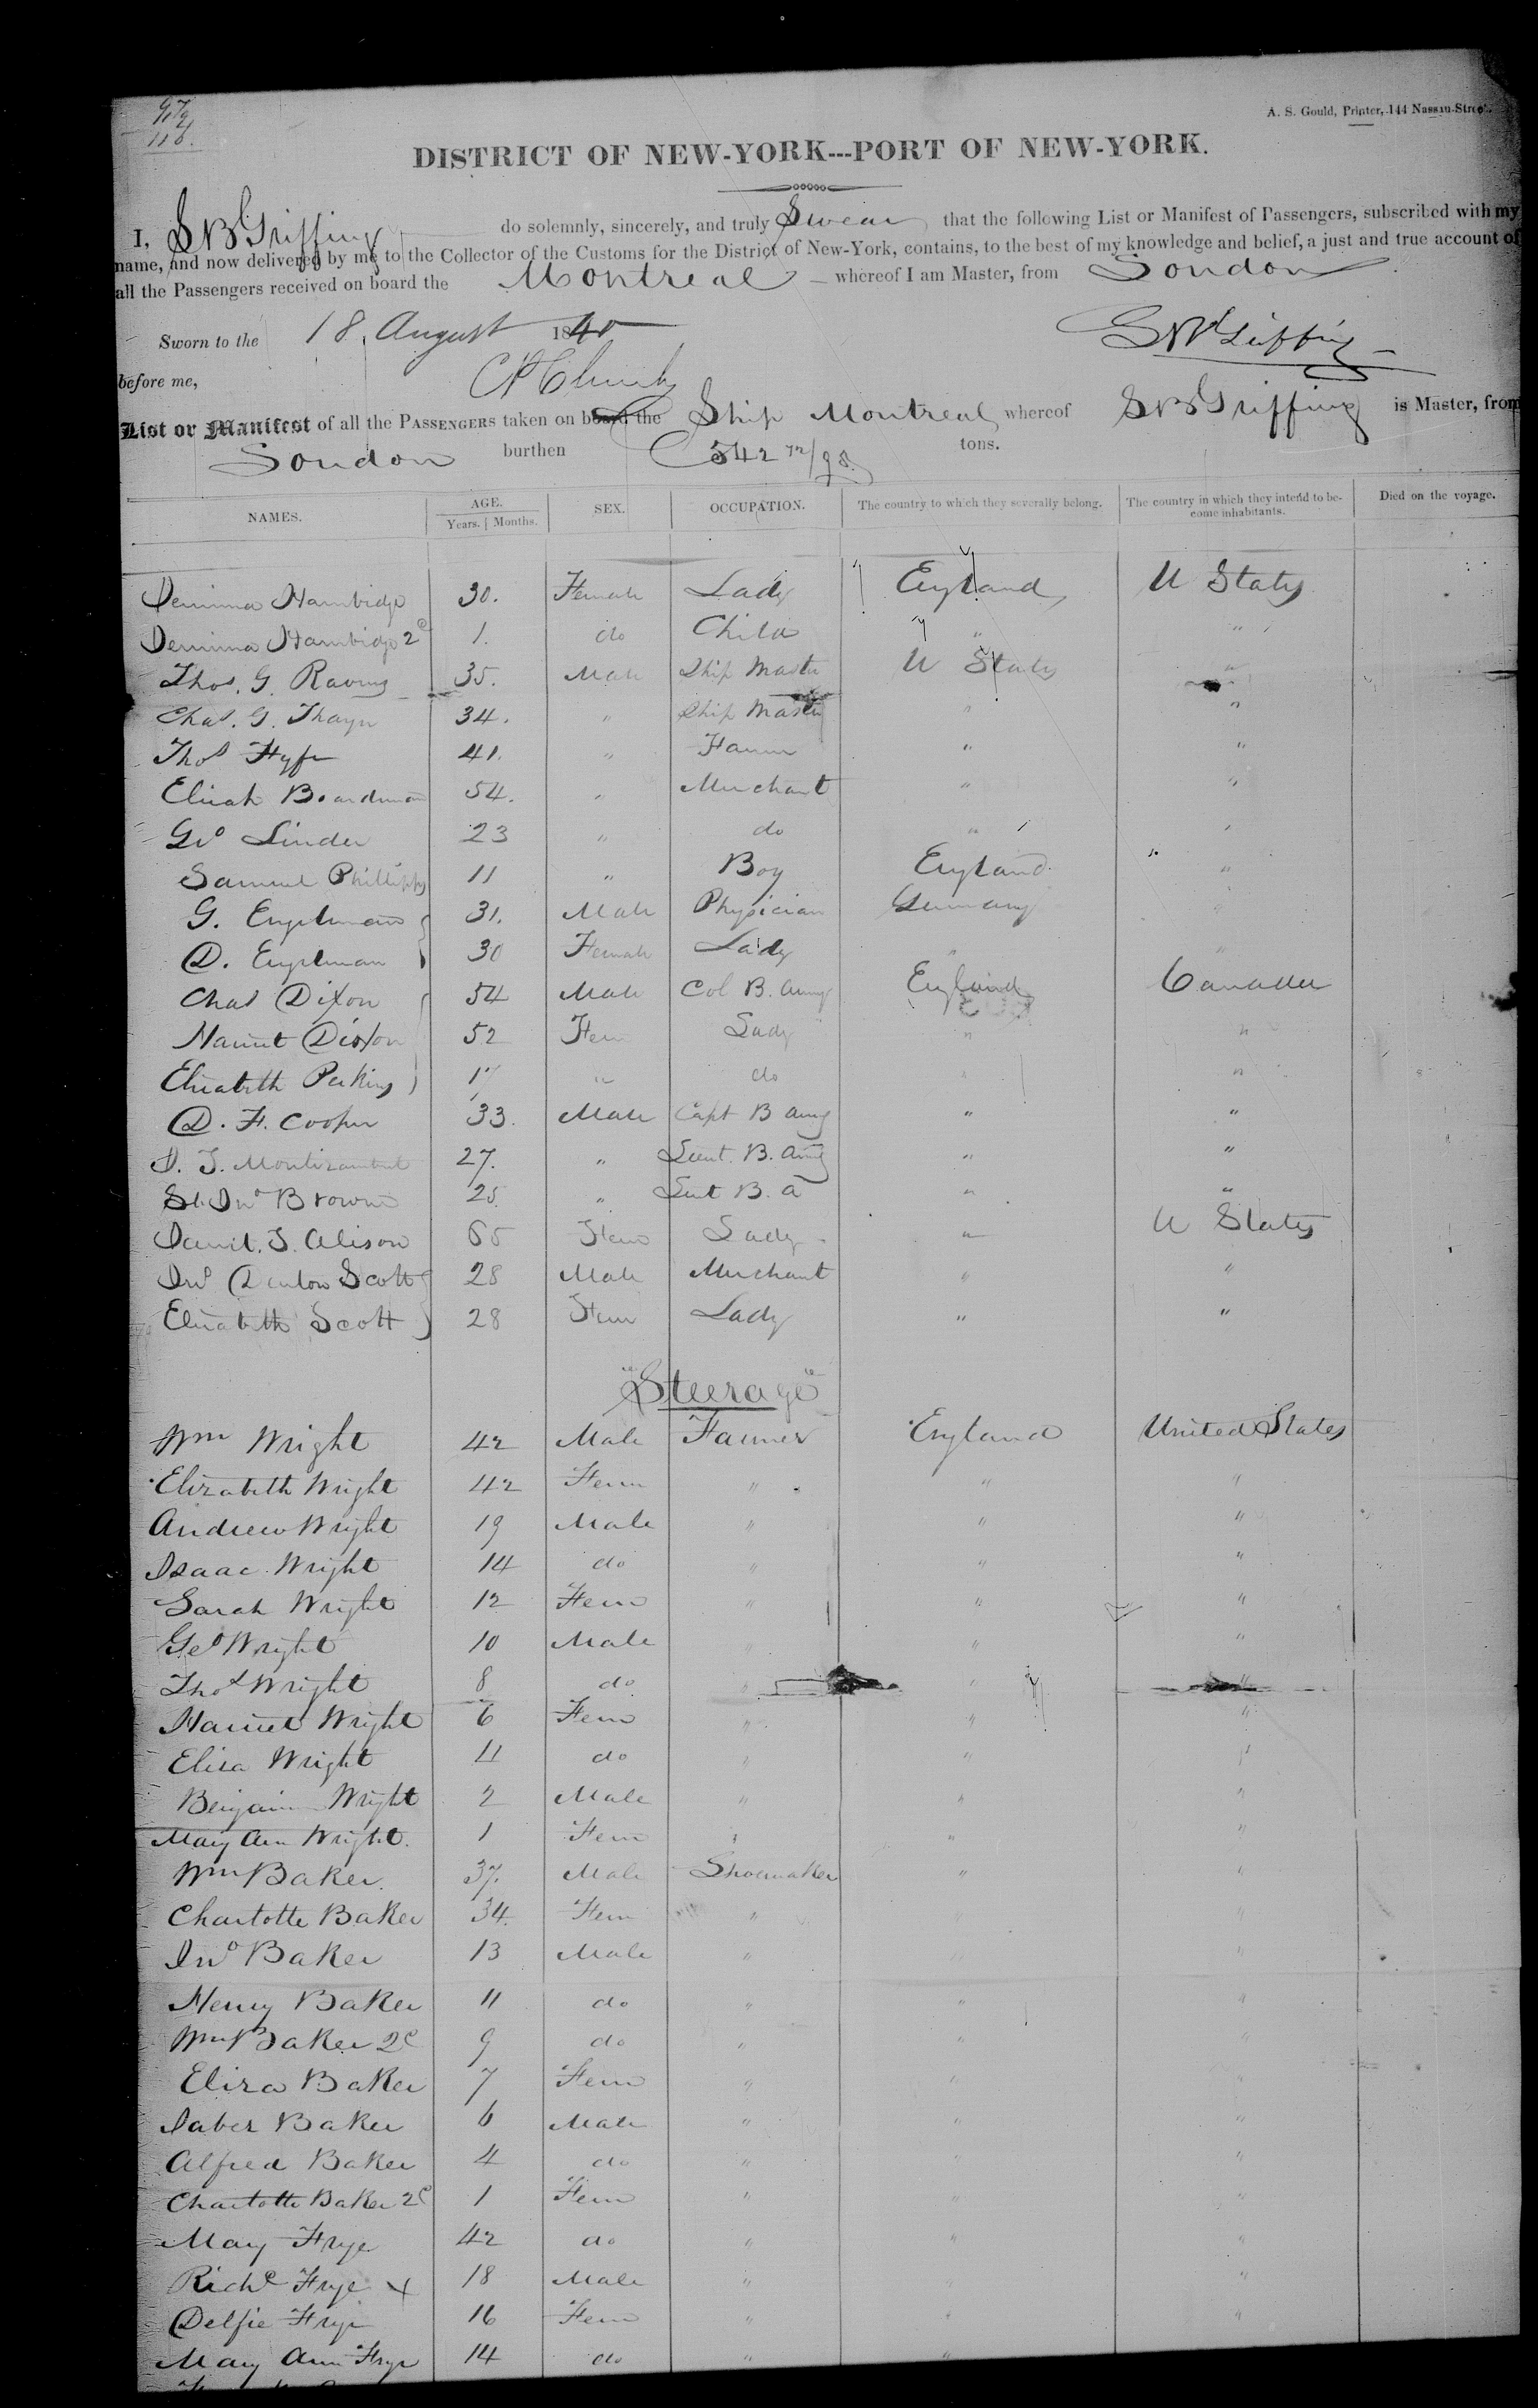 A. S. Gould, Printer, 144 Nassau-Street.
DISTRICT OF NEW-YORK---PORT OF NEW-YORK.
I, S B Griffing do solemnly, sincerely, and truly Swear that the following List or Manifest of Passengers, subscribed with my
name, and now delivered by me to the Collector of the Customs for the District of New-York, contains, to the best of my knowledge and belief, a just and true account of
all the Passengers received on board the Montreal whereof I am Master, from London
Sworn to the 18 August 1840
S B Griffing
before me,
List or Manifest of all the PASSENGERS taken on board the Ship Montreal whereof S B Griffing is Master, from
London burthen 542 72/95 tons.
NAMES. AGE. Years. Months. SEX. OCCUPATION. The country to which they severally belong. The country in which they intend to become inhabitants. Died on the voyage.
Jemima Hambidge 30. Female Lady England U States
Jemima Hambidge 2d 1. do Child " "
Thos. G. 35. Male Ship Master U States "
Chas. G. Thayer 34. " Ship Master " "
Thos Fyfe 41. " Farmer " "
Elijah Boardman 54. " Merchant " "
Geo Linder 23 " do " "
Samuel Phillipps 11 " Boy England "
G. Engelman 31. Male Physician Germany "
D. Engelman 30 Female Lady " "
Chas Dixon 54 Male Col B. Army England Canada
Harriet Dixon 52 Fem Lady " "
Elizabeth Perkins do " "
D. F. Cooper 33. Male Capt B Army " "
27. " Lieut. B. Army " "
St. Jno Browne 25. " Lieut B. A " "
Alison 65 Fem Lady " U States
Jno Denton Scott 28 Male Merchant " "
Elizabeth Scott 28 Fem Lady " "
"Steerage"
Wm Wright 42 Male Farmer England United States
Elizabeth Wright 42 Fem " " "
Andrew Wright 19 Male " " "
Isaac Wright 14 do " " "
Sarah Wright 12 Fem " " "
Geo Wright 10 Male " " "
Thos Wright 8 do " " "
Harriet Wright 6 Fem " " "
Eliza Wright 4 do " " "
Benjamin Wright 2 Male " " "
Mary Ann Wright. 1 Fem " " "
Wm Baker 37. Male Shoemaker " "
Charlotte Baker 34. Fem " " "
Jno Baker 13 Male " " "
Henry Baker 11 do " " "
Wm Baker 2d 9 do " " "
Eliza Baker 7 Fem " " "
Jabez Baker 6 Male " " "
Alfred Baker 4 do " " "
Charlotte Baker 2d 1 Fem " " "
Mary Frye 42 do " " "
Richd Frye x 18 Male " " "
Delfie Frye 16 Fem " " "
Mary Ann Frye 14 do " "